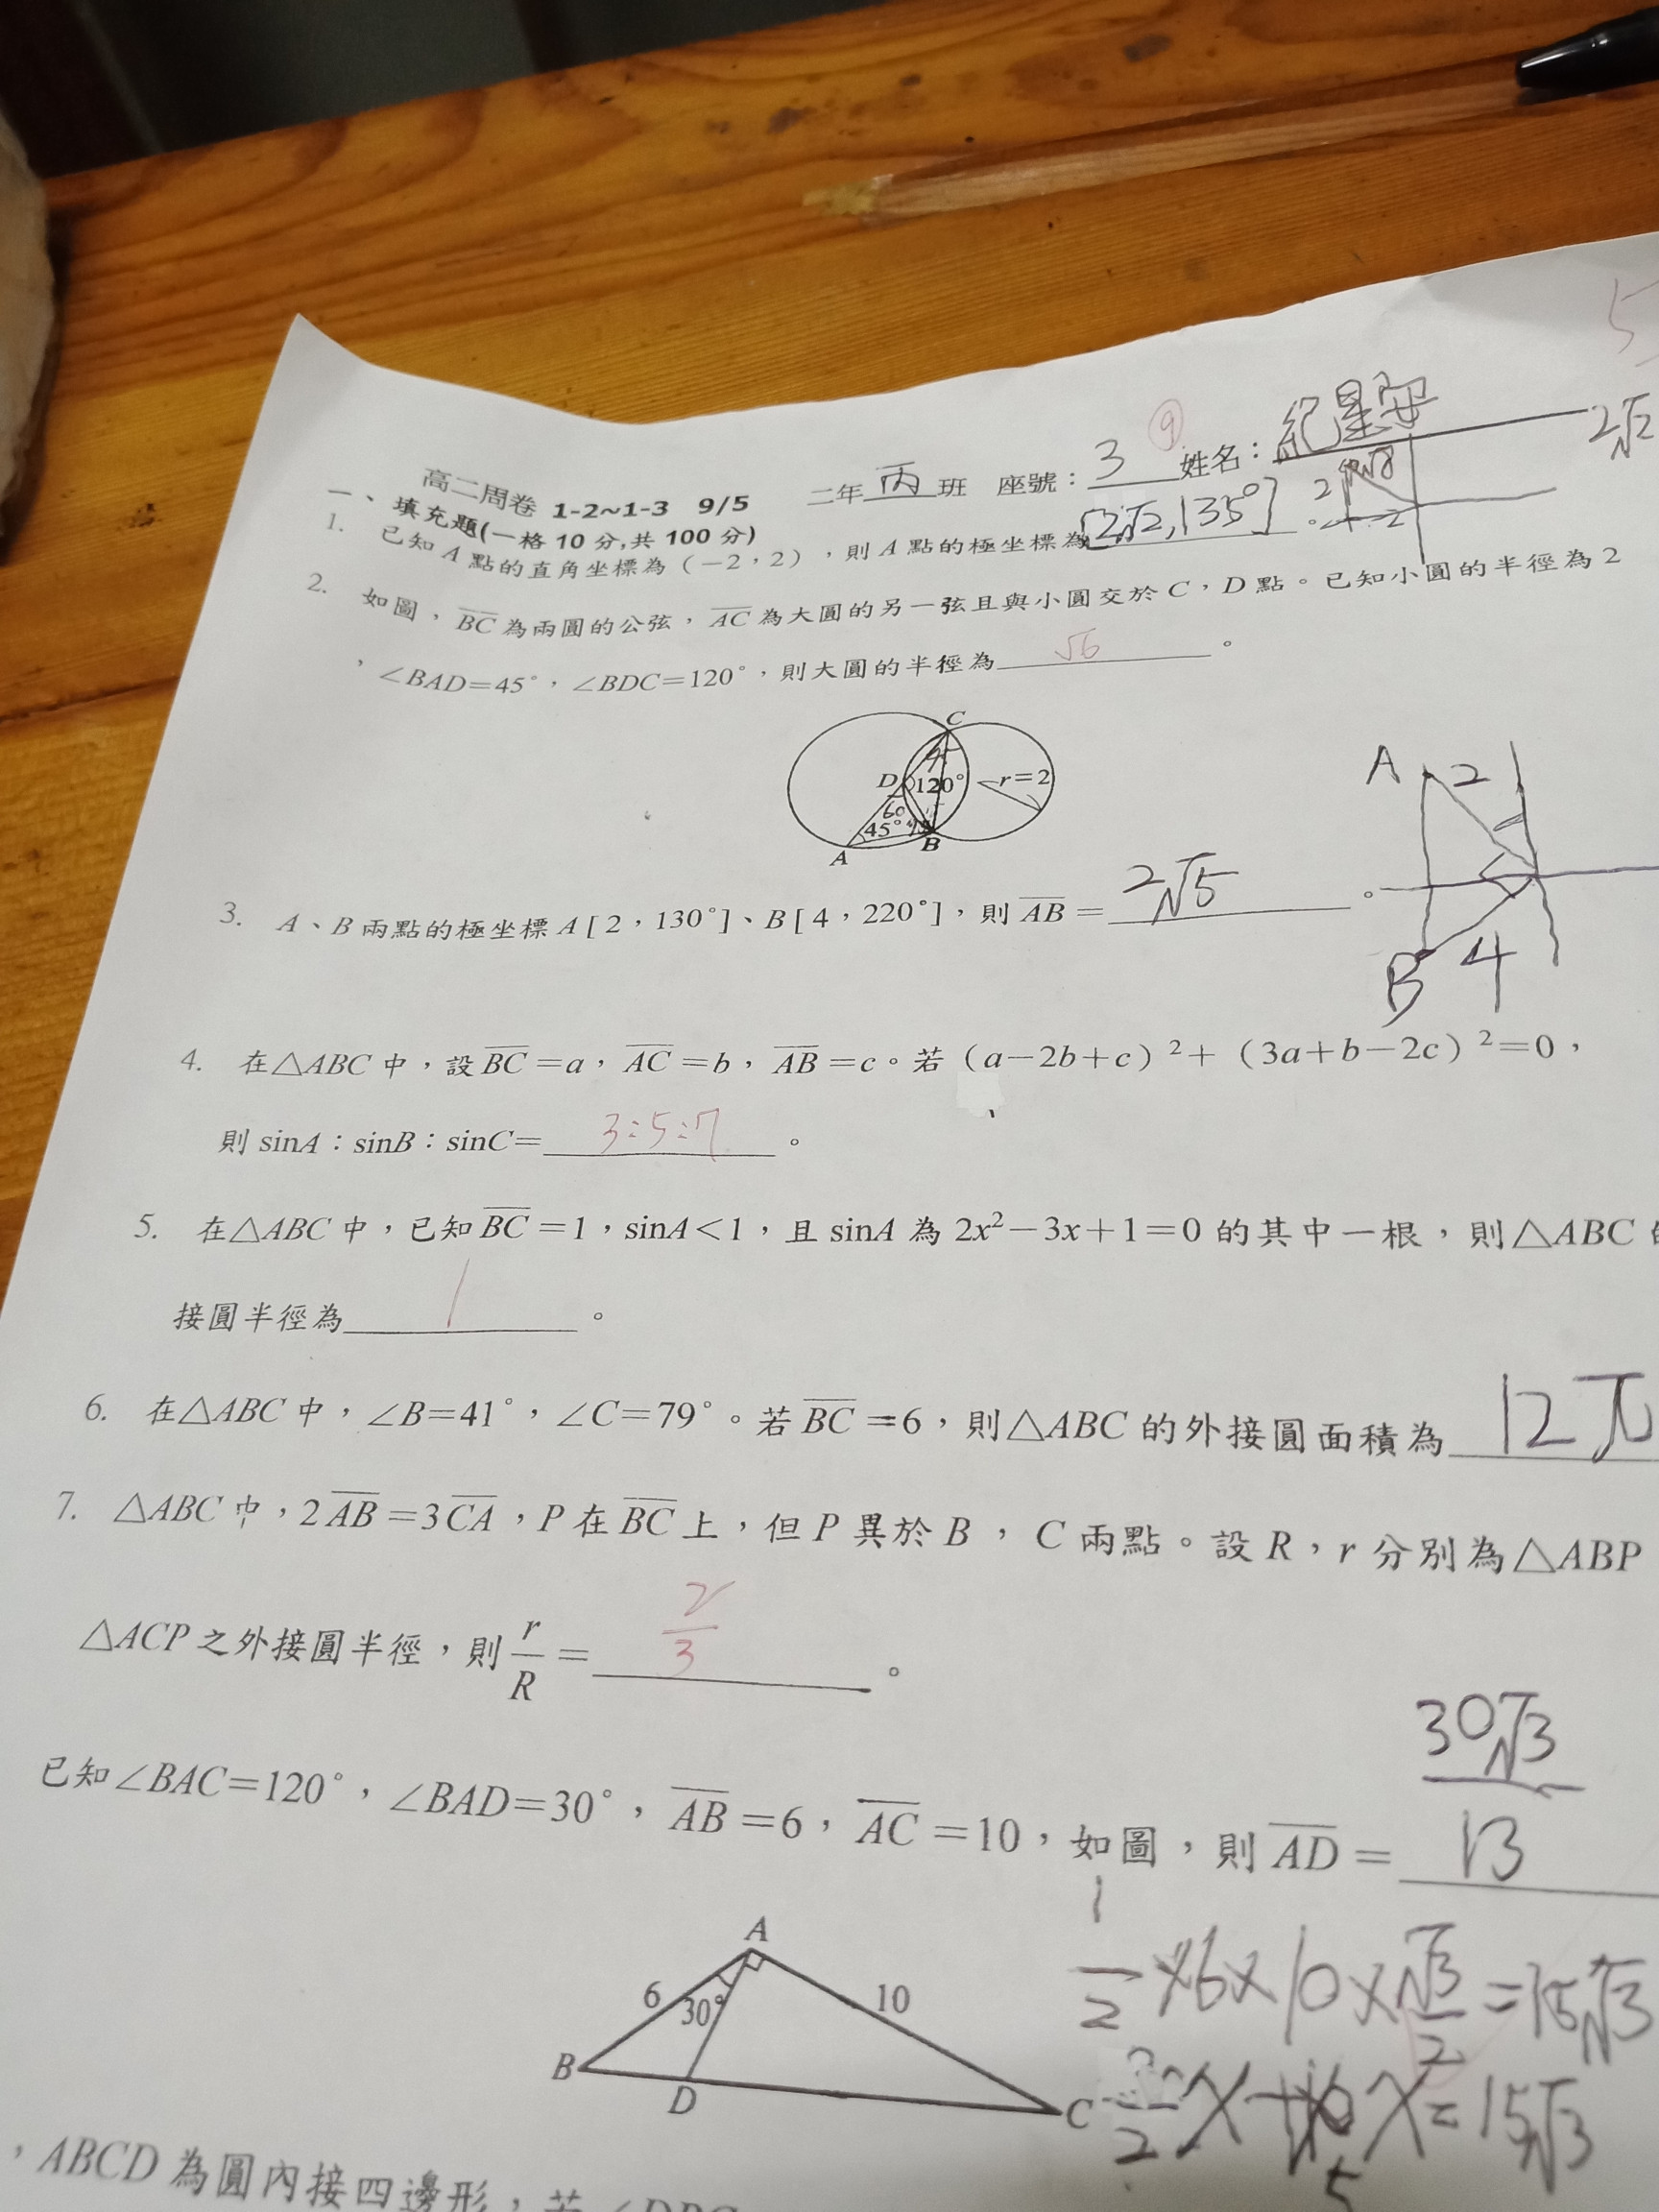 5
高二周卷 1-2~1-3 9/5 二年丙班 座號：3 ⑨ 姓名：紀星安
2√2
一、填充題(一格10分,共100分)
1. 已知A點的直角坐標為（－2，2），則A點的極坐標為[2√2,135°]。
2 2
2. 如圖，BC為兩圓的公弦，AC為大圓的另一弦且與小圓交於C，D點。已知小圓的半徑為2
，∠BAD＝45°，∠BDC＝120°，則大圓的半徑為√6。
C
D 120° r＝2
60
45°
A B
3. A、B兩點的極坐標A[2，130°]、B[4，220°]，則AB＝2√5。
A 2
B 4
4. 在△ABC中，設BC＝a，AC＝b，AB＝c。若（a－2b＋c）²＋（3a＋b－2c）²＝0，
則sinA：sinB：sinC＝3:5:7。
5. 在△ABC中，已知BC＝1，sinA＜1，且sinA為2x²－3x＋1＝0的其中一根，則△ABC
接圓半徑為1。
6. 在△ABC中，∠B＝41°，∠C＝79°。若BC＝6，則△ABC的外接圓面積為12π
7. △ABC中，2AB＝3CA，P在BC上，但P異於B，C兩點。設R，r分別為△ABP
△ACP之外接圓半徑，則r/R＝2/3。
已知∠BAC＝120°，∠BAD＝30°，AB＝6，AC＝10，如圖，則AD＝30√3/13
A
6 30° 10
B D C
1/2×6×10×√3/2=15√3
=15√3
5
，ABCD為圓內接四邊形，若